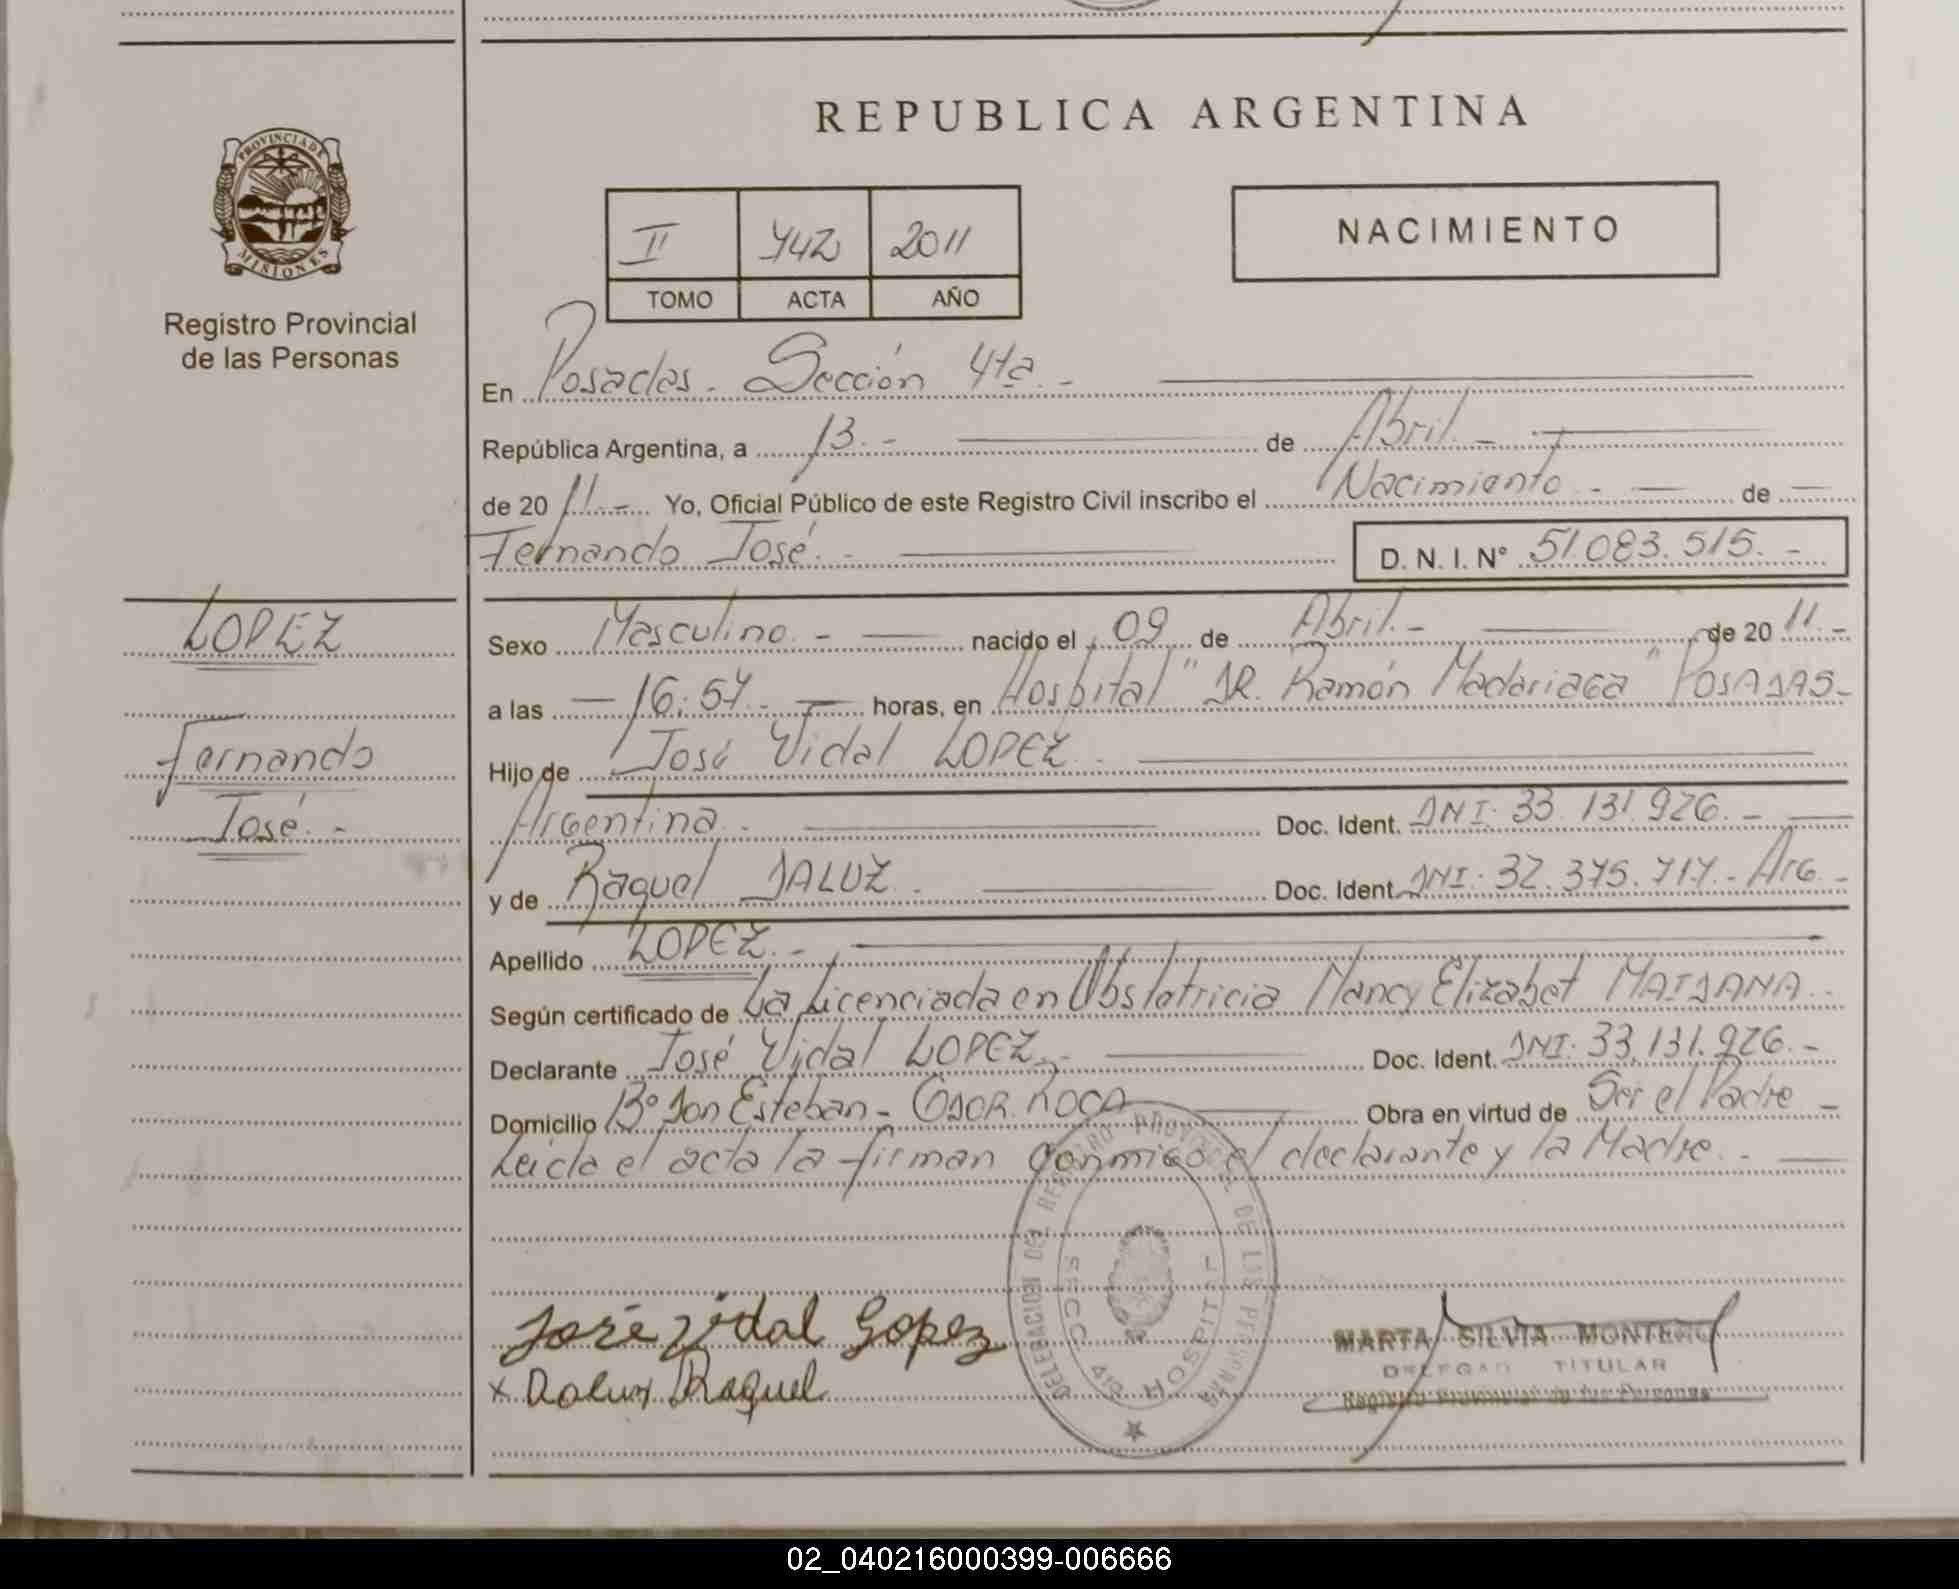 REPUBLICA ARGENTINA
PROVINCIA DE
MISIONES
Registro Provincial
de las Personas
NACIMIENTO
II 742 2011
TOMO ACTA AÑO
En Posadas. Sección 4ta.-
República Argentina, a 13.- de Abril.-
de 20 11.- Yo, Oficial Público de este Registro Civil inscribo el Nacimiento.- de -
Fernando José.- D. N. I. N° 51.083.515.-
LOPEZ
Fernando
José.-
Sexo Masculino.- nacido el 09 de Abril.- de 20 11.-
a las - 16:57.- horas, en Hospital "DR. Ramón Madariaga" POSADAS-
Hijo de José Vidal LOPEZ.
Argentina.- Doc. Ident. DNI. 33.131.926.-
y de Raquel DALUZ. Doc. Ident. DNI. 32.375.717.- Arg.-
Apellido LOPEZ.-
Según certificado de La Licenciada en Obstetricia Nancy Elizabet MAIDANA.
Declarante José Vidal LOPEZ.- Doc. Ident. DNI. 33.131.926.-
Domicilio B° Don Esteban- Gdor. ROCA Obra en virtud de Ser el Padre -
Leida el acta la firman conmigo el declarante y la Madre.-
José Vidal Lopez
x Daluz Raquel
DELEGACION DEL REGISTRO PROVINCIAL DE LAS PERSONAS
SECC 4ta HOSPITAL
MARTA SILVIA MONTERO
DELEGADA TITULAR
Registro Provincial de las Personas
02_040216000399-006666